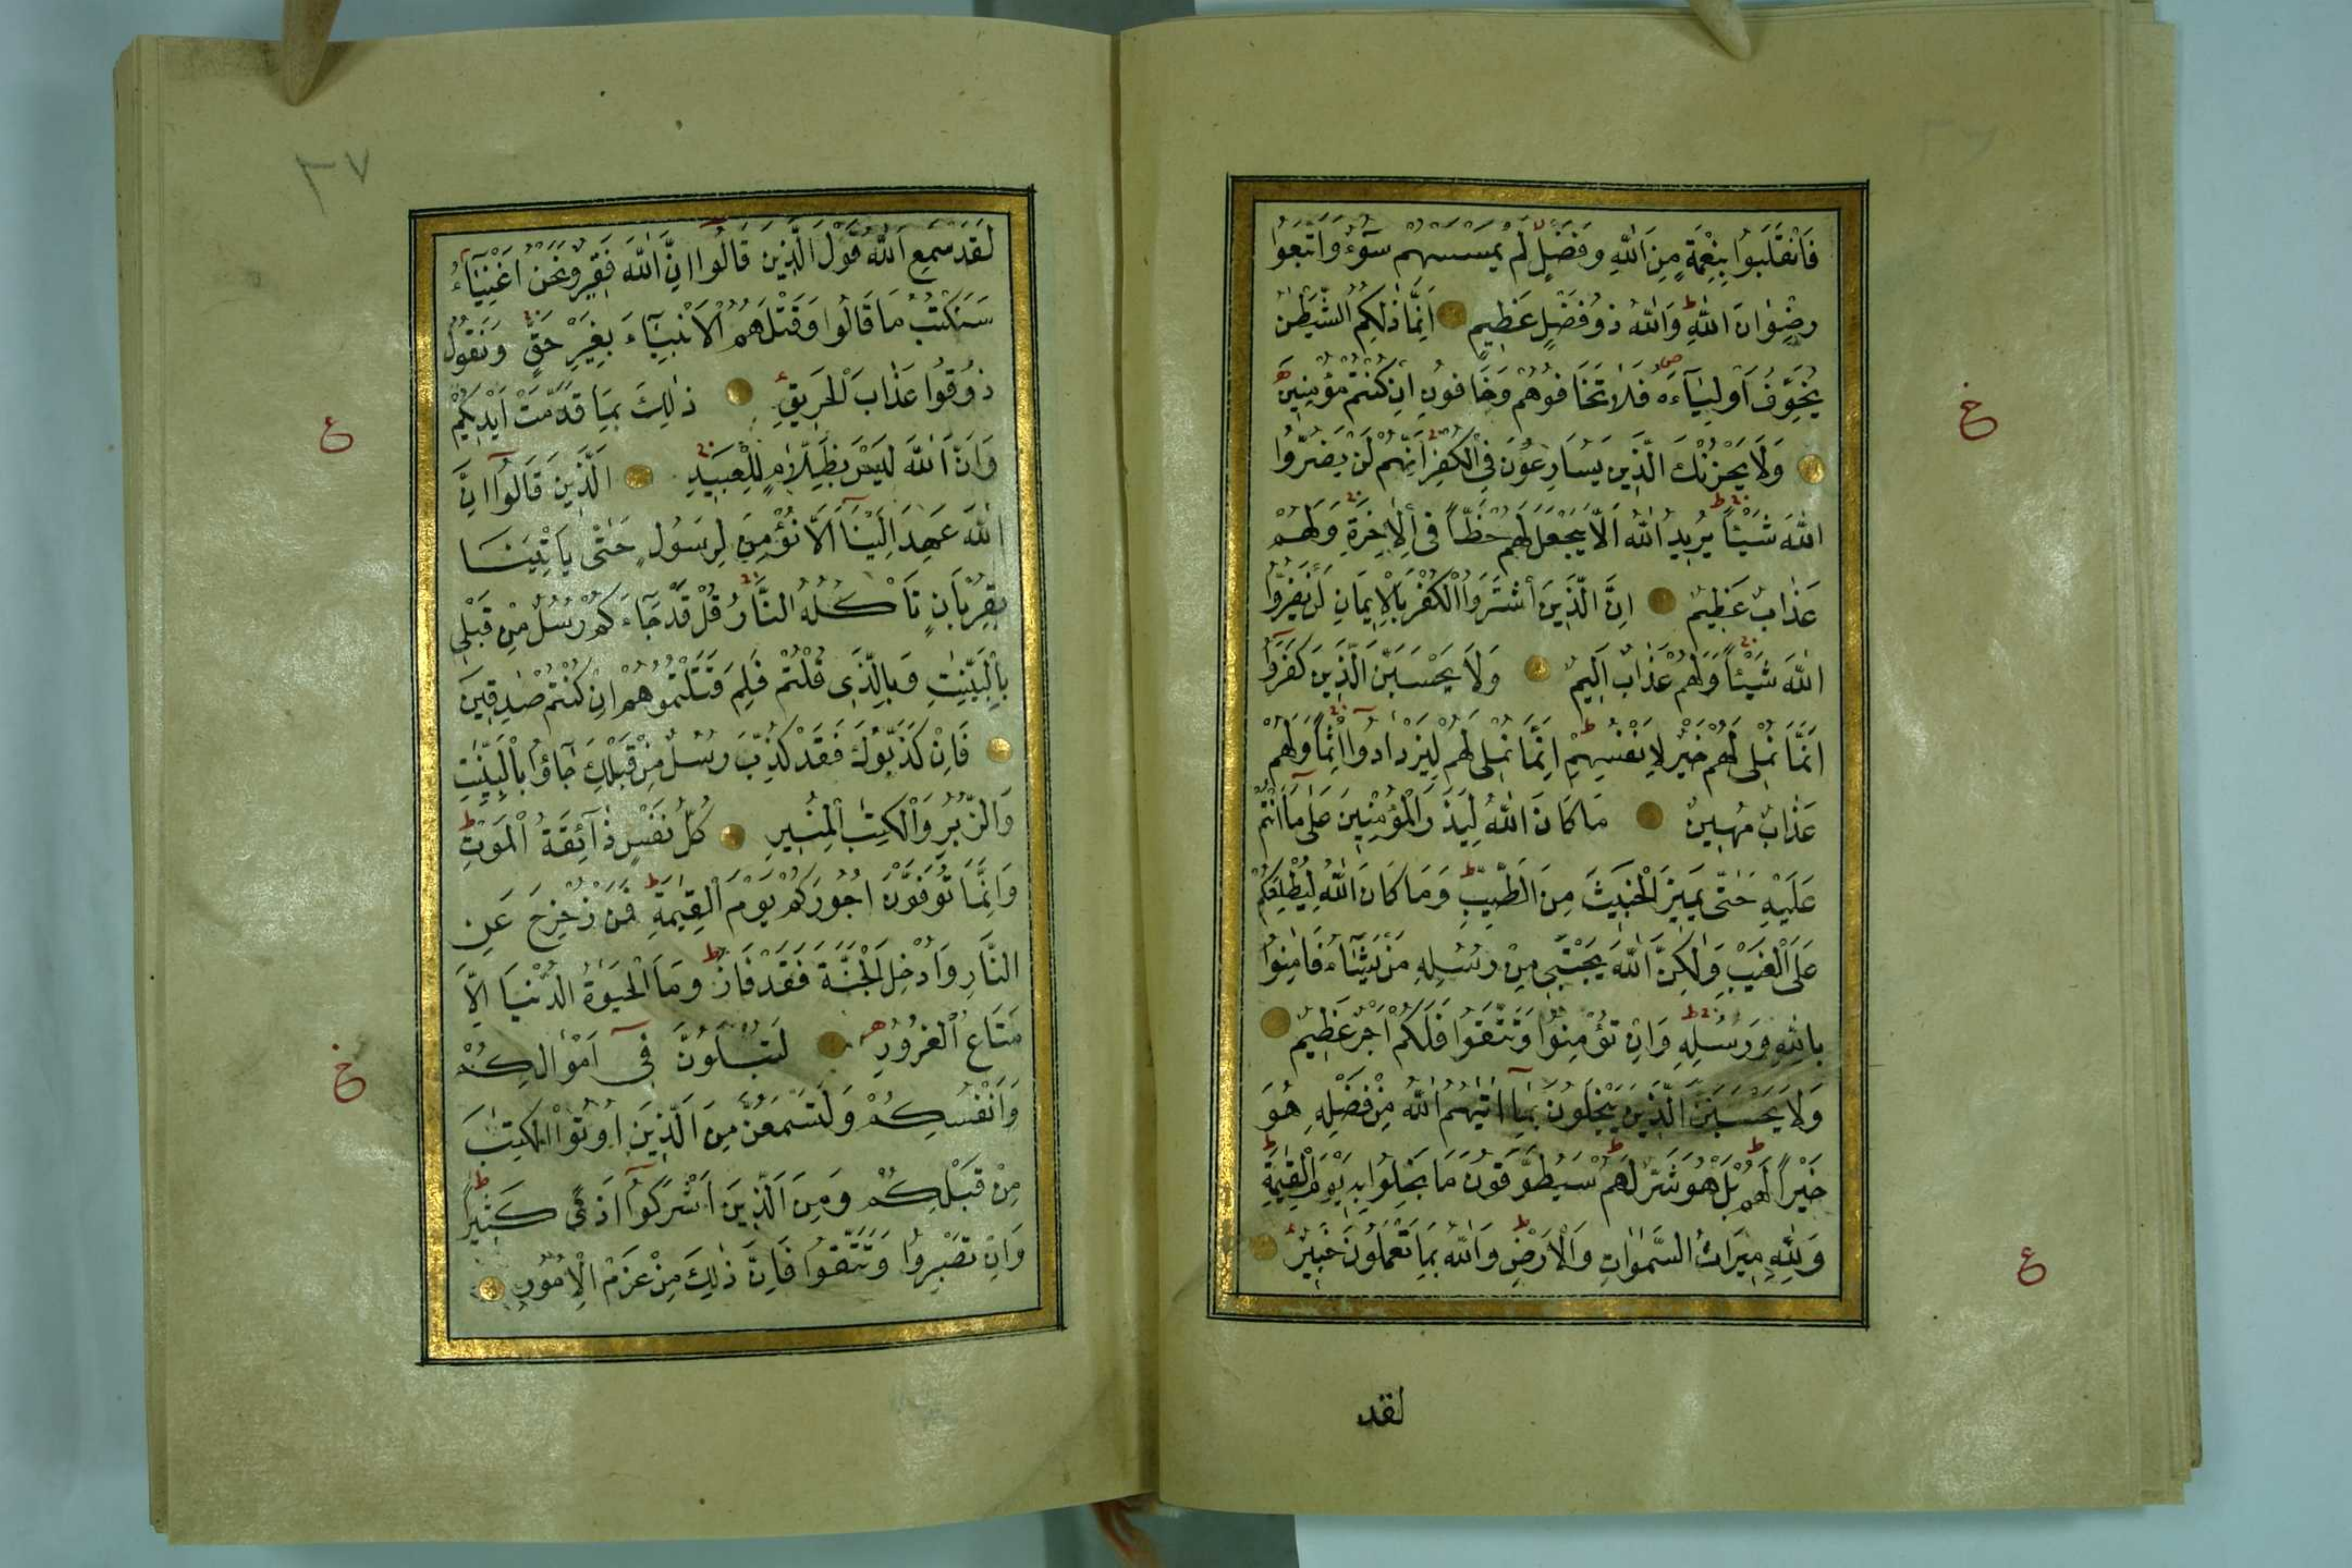 فَانْقَلَبُوا بِنِعْمَةٍ مِنَ اللّٰهِ وَفَضْلٍ لَمْ يَمْسَسْهُمْ سُوٓءٌ وَاتَّبَعُوا
رِضْوَانَ اللّٰهِ وَاللّٰهُ ذُو فَضْلٍ عَظِيمٍ اِنَّمَا ذٰلِكُمُ الشَّيْطٰنُ
يُخَوِّفُ اَوْلِيَآءَهُ فَلَا تَخَافُوهُمْ وَخَافُونِ اِنْ كُنْتُمْ مُؤْمِنِينَ
وَلَا يَحْزُنْكَ الَّذِينَ يُسَارِعُونَ فِي الْكُفْرِ اِنَّهُمْ لَنْ يَضُرُّوا
اللّٰهَ شَيْئًا يُرِيدُ اللّٰهُ اَلَّا يَجْعَلَ لَهُمْ حَظًّا فِي الْاٰخِرَةِ وَلَهُمْ
عَذَابٌ عَظِيمٌ اِنَّ الَّذِينَ اشْتَرَوُا الْكُفْرَ بِالْاِيمَانِ لَنْ يَضُرُّوا
اللّٰهَ شَيْئًا وَلَهُمْ عَذَابٌ اَلِيمٌ وَلَا يَحْسَبَنَّ الَّذِينَ كَفَرُوٓا
اَنَّمَا نُمْلِي لَهُمْ خَيْرٌ لِاَنْفُسِهِمْ اِنَّمَا نُمْلِي لَهُمْ لِيَزْدَادُوٓا اِثْمًا وَلَهُمْ
عَذَابٌ مُهِينٌ مَا كَانَ اللّٰهُ لِيَذَرَ الْمُؤْمِنِينَ عَلٰى مَآ اَنْتُمْ
عَلَيْهِ حَتّٰى يَمِيزَ الْخَبِيثَ مِنَ الطَّيِّبِ وَمَا كَانَ اللّٰهُ لِيُطْلِعَكُمْ
عَلَى الْغَيْبِ وَلٰكِنَّ اللّٰهَ يَجْتَبِي مِنْ رُسُلِهِ مَنْ يَشَآءُ فَاٰمِنُوا
بِاللّٰهِ وَرُسُلِهِ وَاِنْ تُؤْمِنُوا وَتَتَّقُوا فَلَكُمْ اَجْرٌ عَظِيمٌ
وَلَا يَحْسَبَنَّ الَّذِينَ يَبْخَلُونَ بِمَآ اٰتٰيهُمُ اللّٰهُ مِنْ فَضْلِهِ هُوَ
خَيْرًا لَهُمْ بَلْ هُوَ شَرٌّ لَهُمْ سَيُطَوَّقُونَ مَا بَخِلُوا بِهِ يَوْمَ الْقِيٰمَةِ
وَلِلّٰهِ مِيرَاثُ السَّمٰوَاتِ وَالْاَرْضِ وَاللّٰهُ بِمَا تَعْمَلُونَ خَبِيرٌ
لقد
خ
ع
٣٧
لَقَدْ سَمِعَ اللّٰهُ قَوْلَ الَّذِينَ قَالُوٓا اِنَّ اللّٰهَ فَقِيرٌ وَنَحْنُ اَغْنِيَآءُ
سَنَكْتُبُ مَا قَالُوا وَقَتْلَهُمُ الْاَنْبِيَآءَ بِغَيْرِ حَقٍّ وَنَقُولُ
ذُوقُوا عَذَابَ الْحَرِيقِ ذٰلِكَ بِمَا قَدَّمَتْ اَيْدِيكُمْ
وَاَنَّ اللّٰهَ لَيْسَ بِظَلَّامٍ لِلْعَبِيدِ اَلَّذِينَ قَالُوٓا اِنَّ
اللّٰهَ عَهِدَ اِلَيْنَآ اَلَّا نُؤْمِنَ لِرَسُولٍ حَتّٰى يَاْتِيَنَا
بِقُرْبَانٍ تَاْكُلُهُ النَّارُ قُلْ قَدْ جَآءَكُمْ رُسُلٌ مِنْ قَبْلِي
بِالْبَيِّنٰتِ وَبِالَّذِي قُلْتُمْ فَلِمَ قَتَلْتُمُوهُمْ اِنْ كُنْتُمْ صٰدِقِينَ
فَاِنْ كَذَّبُوكَ فَقَدْ كُذِّبَ رُسُلٌ مِنْ قَبْلِكَ جَآؤُا بِالْبَيِّنٰتِ
وَالزُّبُرِ وَالْكِتٰبِ الْمُنِيرِ كُلُّ نَفْسٍ ذَآئِقَةُ الْمَوْتِ
وَاِنَّمَا تُوَفَّوْنَ اُجُورَكُمْ يَوْمَ الْقِيٰمَةِ فَمَنْ زُحْزِحَ عَنِ
النَّارِ وَاُدْخِلَ الْجَنَّةَ فَقَدْ فَازَ وَمَا الْحَيٰوةُ الدُّنْيَا اِلَّا
مَتَاعُ الْغُرُورِ لَتُبْلَوُنَّ فِيٓ اَمْوَالِكُمْ
وَاَنْفُسِكُمْ وَلَتَسْمَعُنَّ مِنَ الَّذِينَ اُوتُوا الْكِتٰبَ
مِنْ قَبْلِكُمْ وَمِنَ الَّذِينَ اَشْرَكُوٓا اَذًى كَثِيرًا
وَاِنْ تَصْبِرُوا وَتَتَّقُوا فَاِنَّ ذٰلِكَ مِنْ عَزْمِ الْاُمُورِ
ع
خ